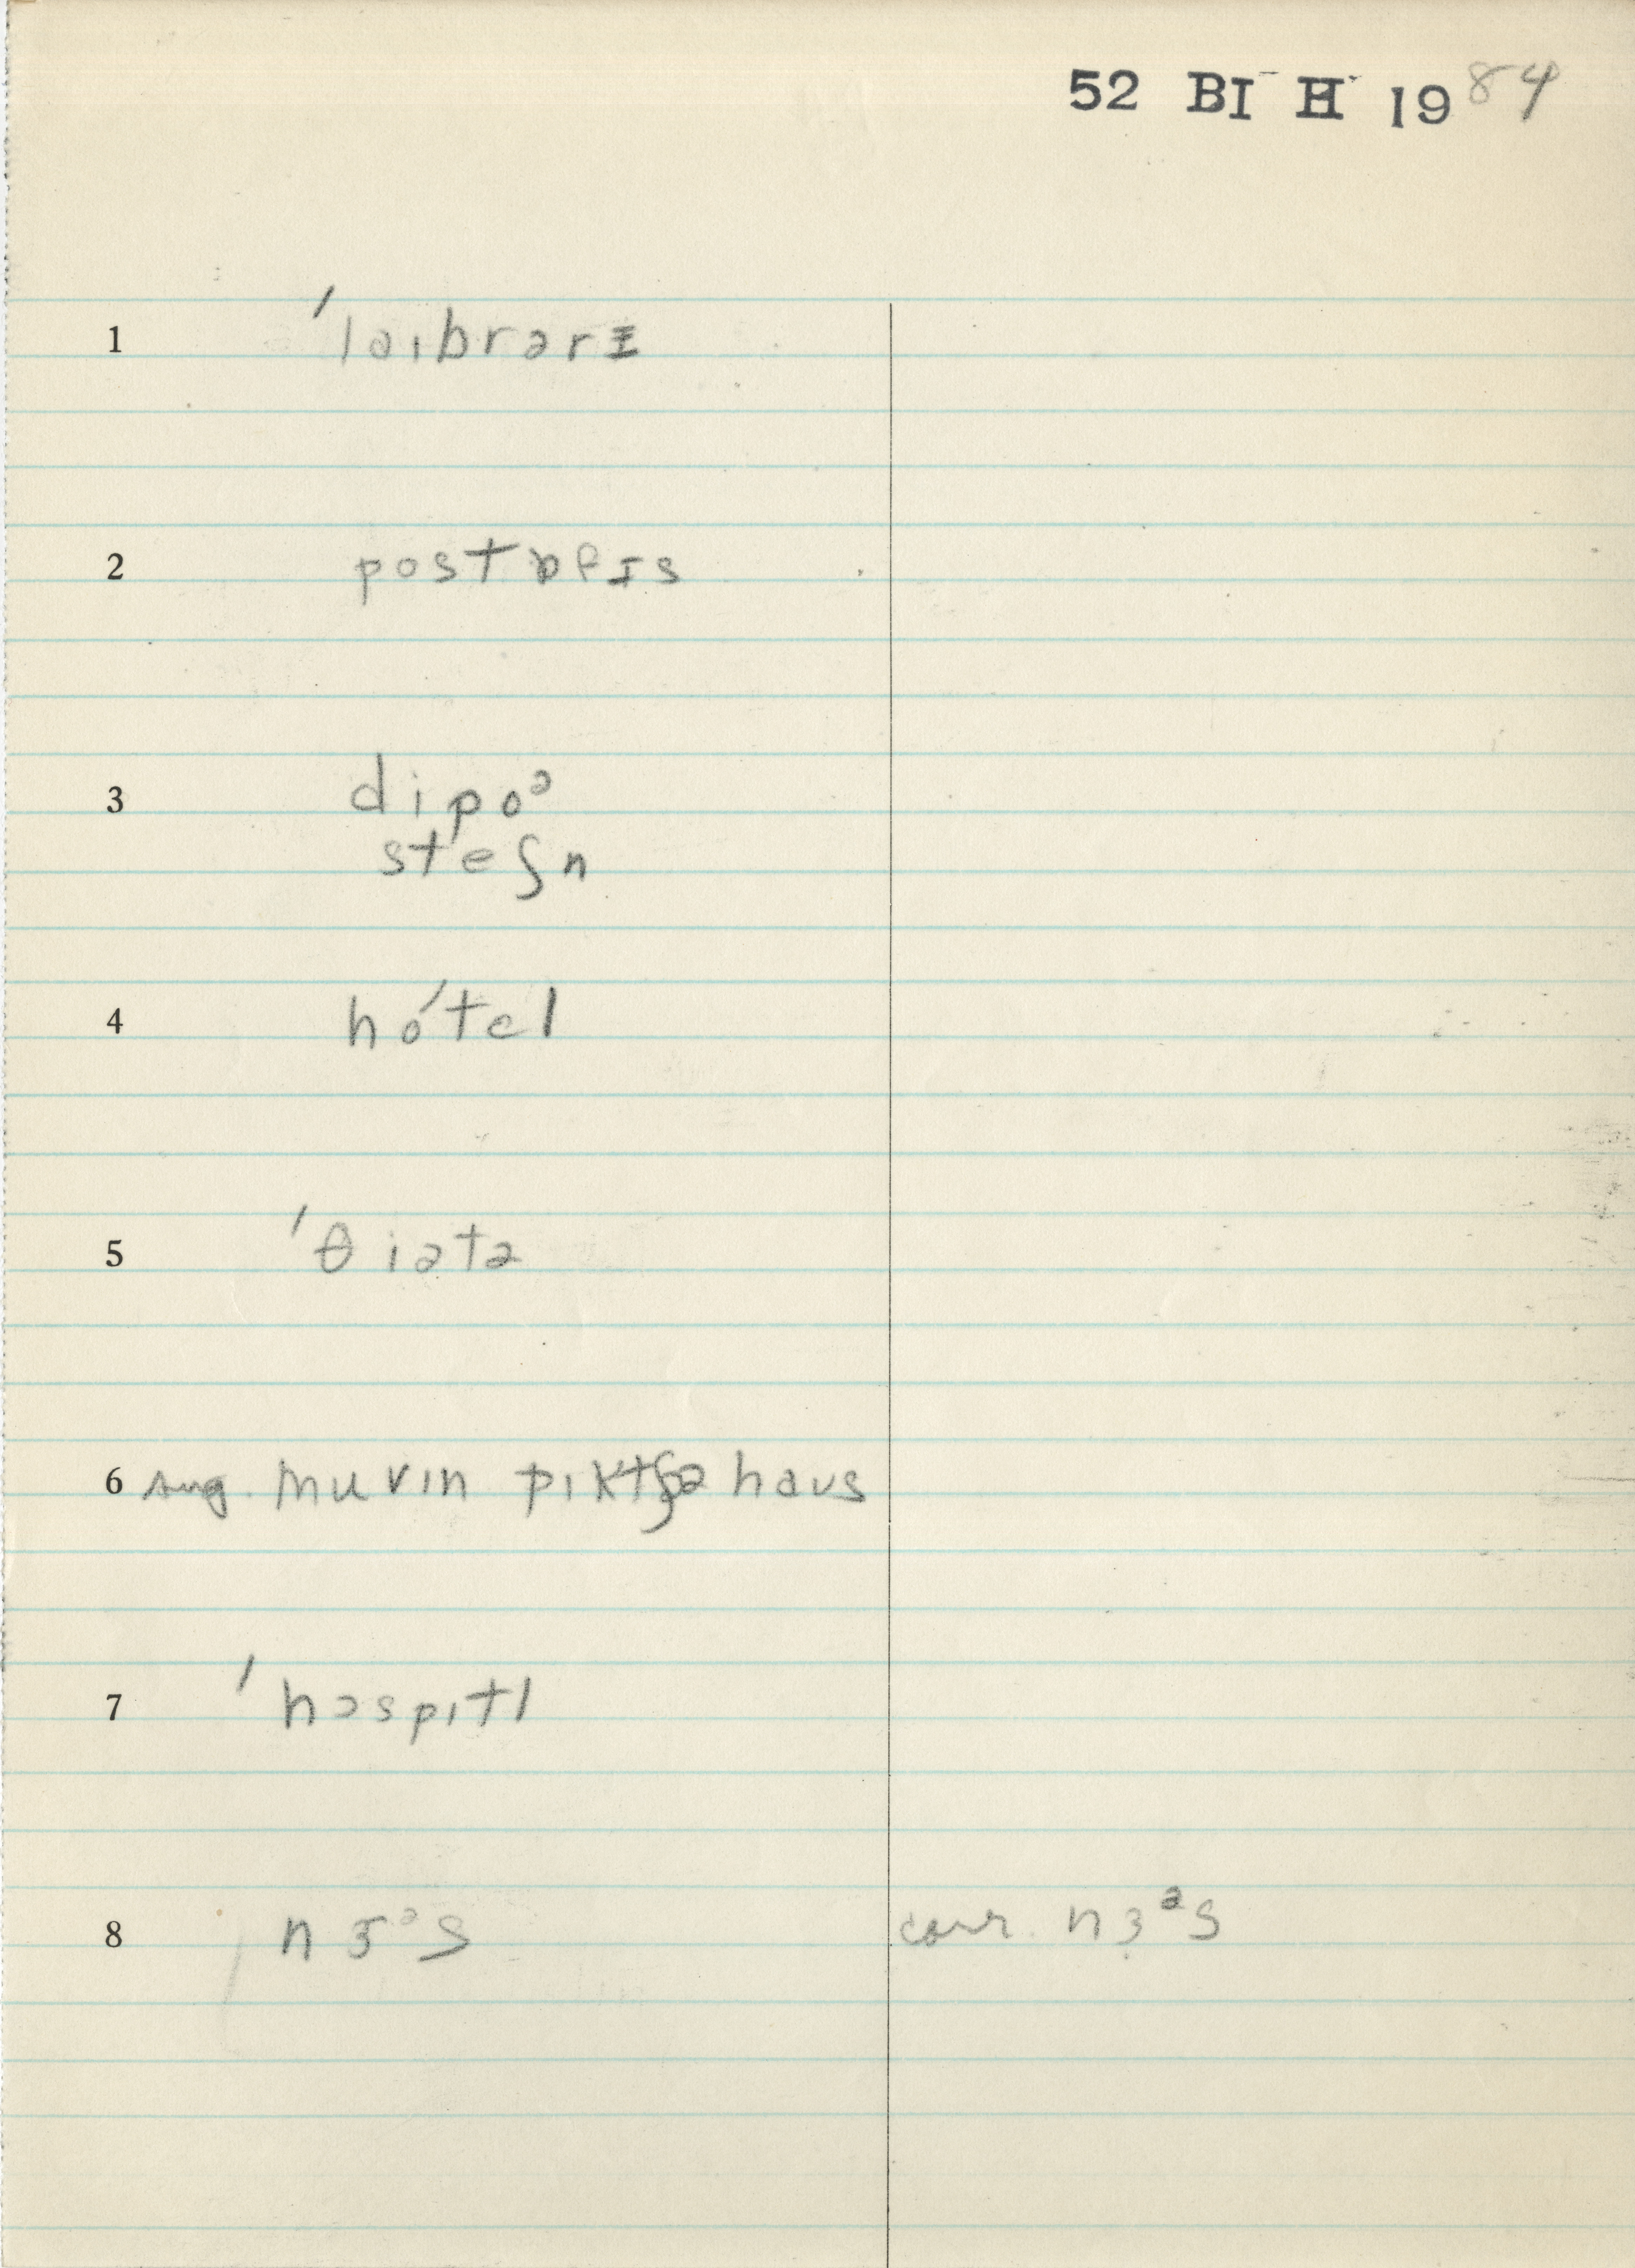 52 BI H 1984
1 ˈlaɪbrərɪ
2 postɒfɪs
3 dipoᵊ
steʃn
4 hoˈtel
5 ˈθiətə
6 sug. muvɪn pɪktʃə haʊs
7 ˈhɔspɪtl
8 nɜᵊs corr. nɜᵊs